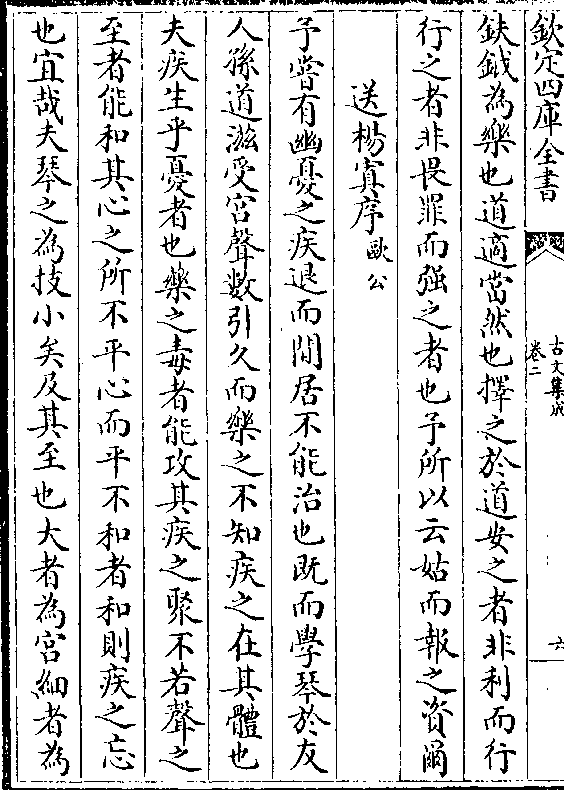 欽定四庫全書
古文集成
卷二
六
鈇鉞為樂也道適當然也擇之於道安之者非利而行
行之者非畏罪而强之者也予所以云姑而報之資爾
送楊寘序歐公
予嘗有幽憂之疾退而閒居不能治也既而學琴於友
人孫道滋受宮聲數引久而樂之不知疾之在其體也
夫疾生乎憂者也藥之毒者能攻其疾之聚不若聲之
至者能和其心之所不平心而平不和者和則疾之忘
也宜哉夫琴之為技小矣及其至也大者為宮細者為